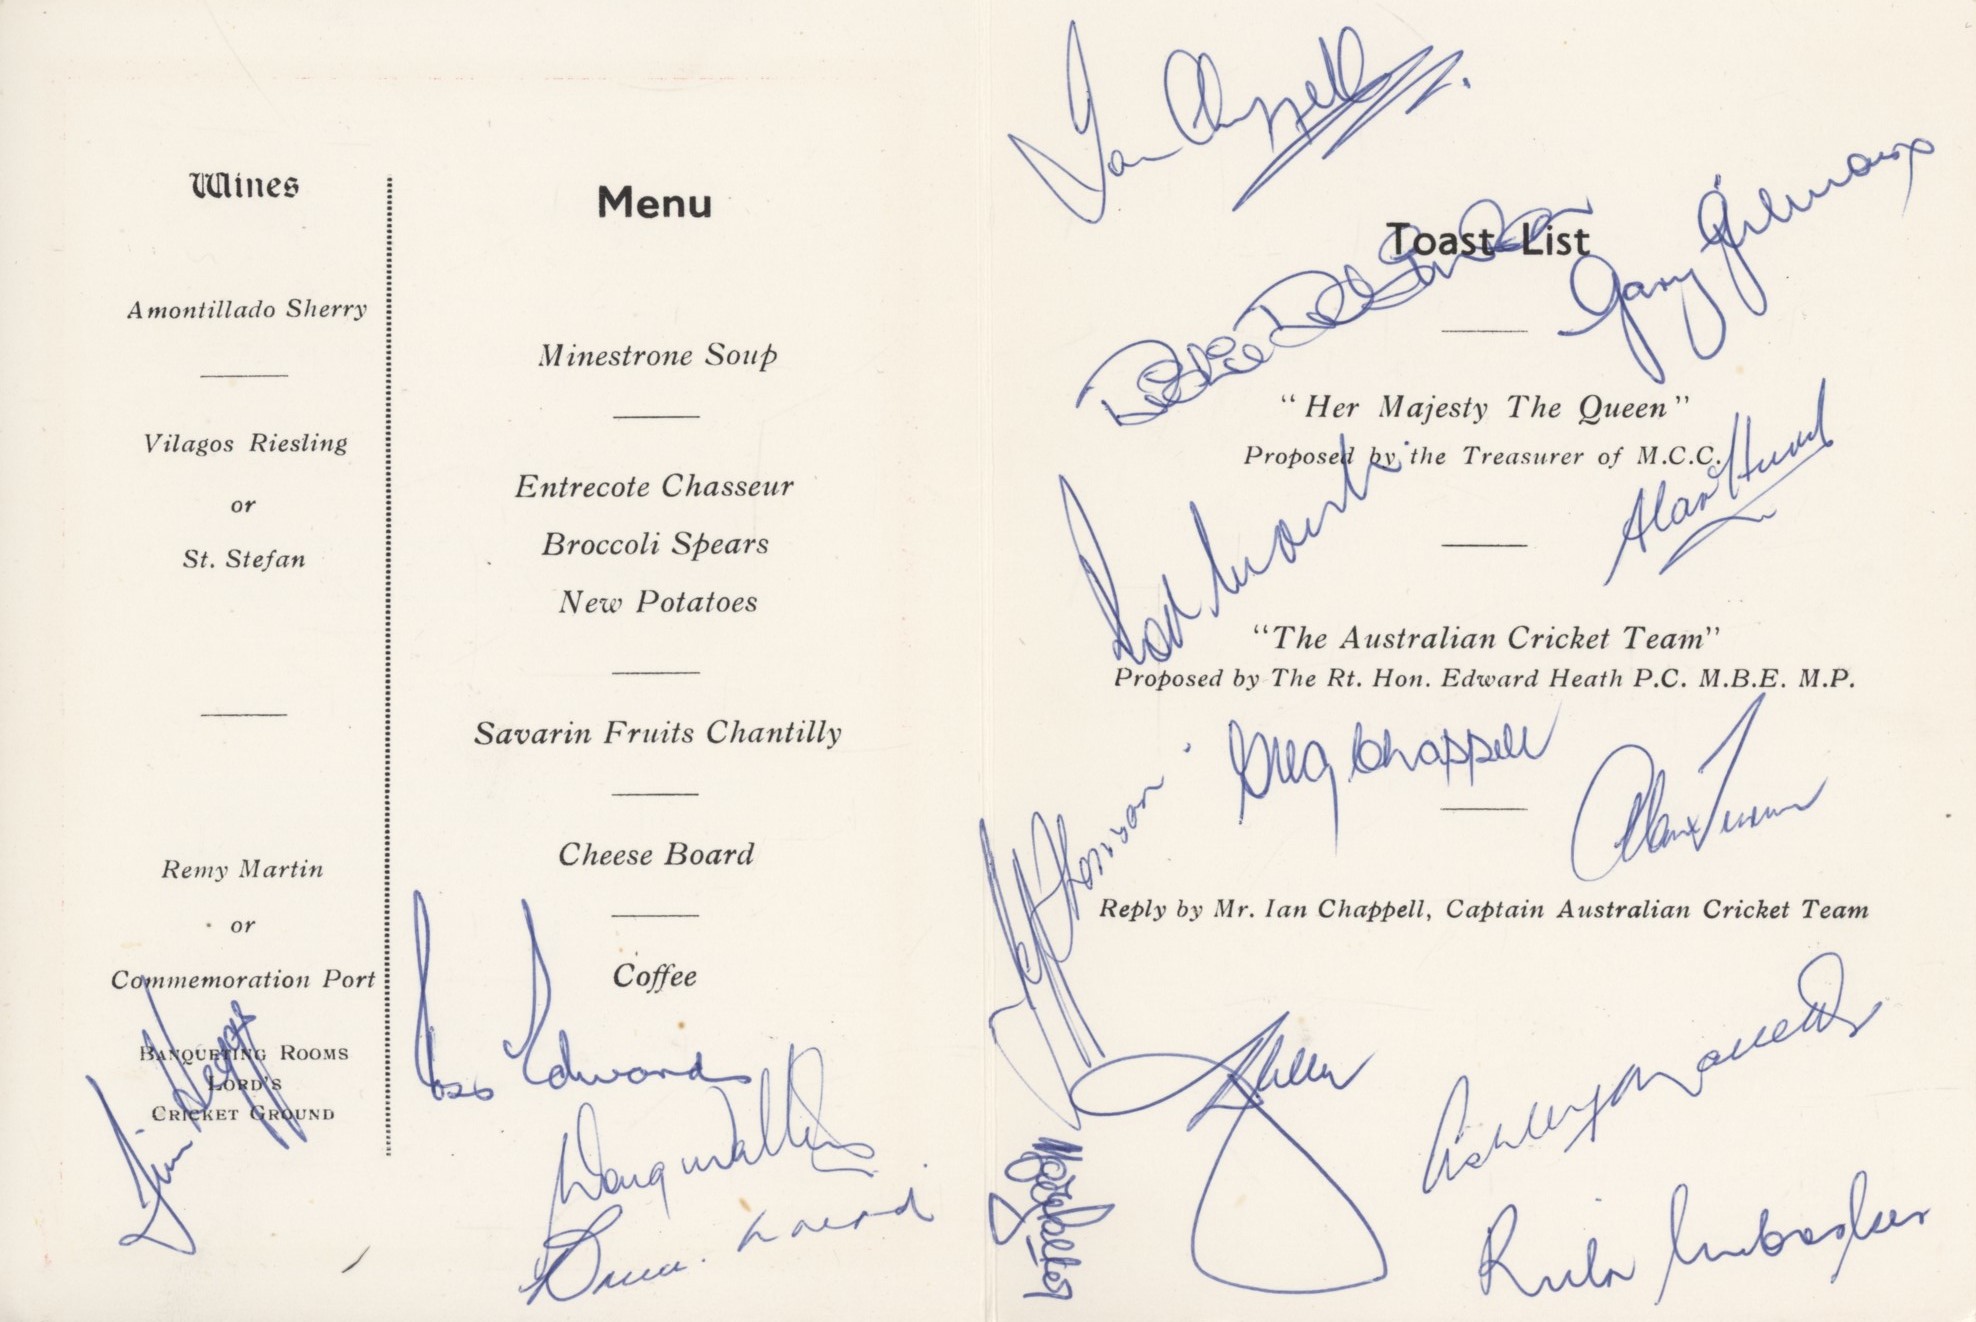 Wines
Amontillado Sherry
Vilagos Riesling
or
St. Stefan
Remy Martin
or
Commemoration Port
Banqueting Rooms
Lord's
Cricket Ground
Jim Higgs
Menu
Minestrone Soup
Entrecote Chasseur
Broccoli Spears
New Potatoes
Savarin Fruits Chantilly
Cheese Board
Coffee
Ross Edwards
Doug Walters
Bruce Laird
Ian Chappell
Toast List
Gary Gilmour
"Her Majesty The Queen"
Proposed by the Treasurer of M.C.C.
Alan Hurst
Rod Marsh
"The Australian Cricket Team"
Proposed by The Rt. Hon. Edward Heath P.C. M.B.E. M.P.
Greg Chappell
Alan Turner
Jeff Thomson
Reply by Mr. Ian Chappell, Captain Australian Cricket Team
Ashley Mallett
Max Walker